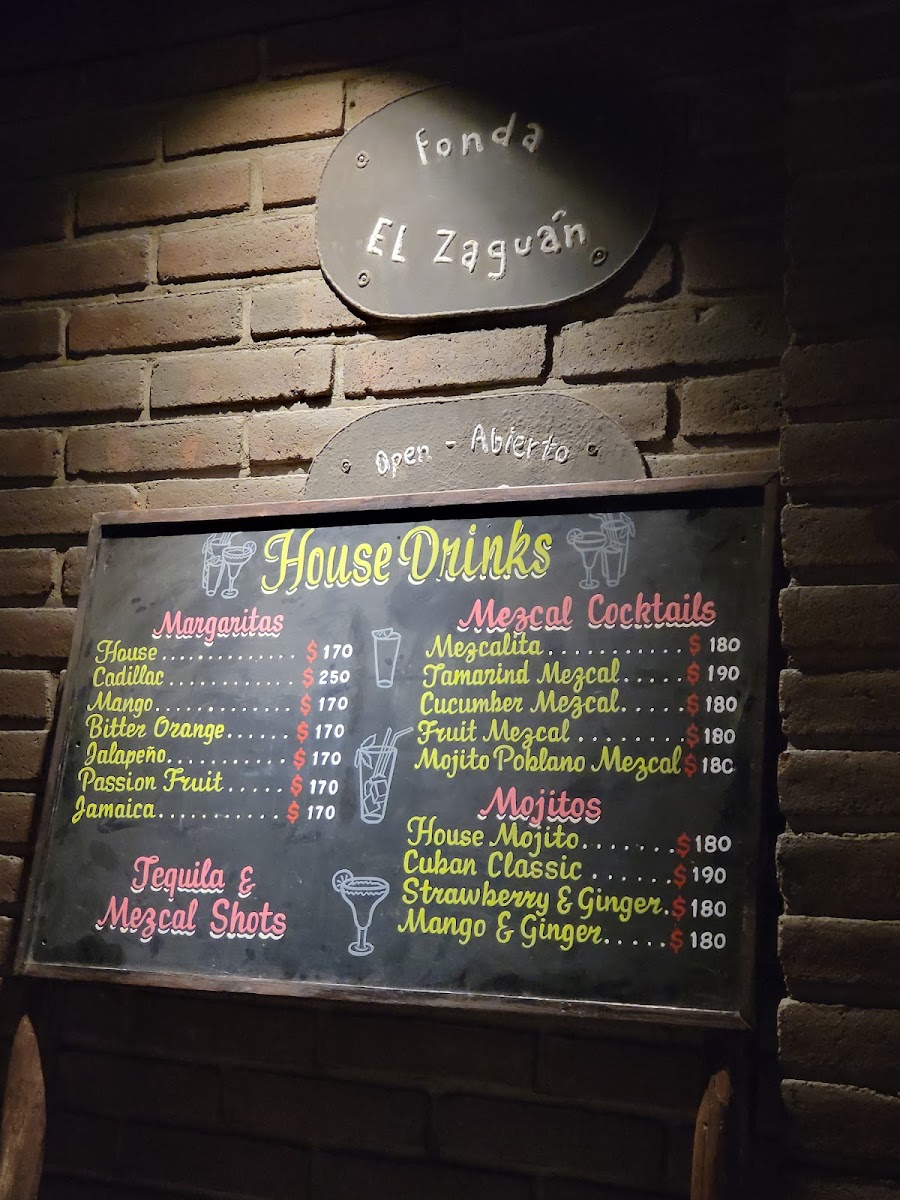 Fonda
EL Zaguán
Open - Abierto
House Drinks
Margaritas
House.............. $ 170
Cadillac.............. $ 250
Mango.............. $ 170
Bitter Orange...... $ 170
Jalapeño............ $ 170
Passion Fruit ..... $ 170
Jamaica............ $ 170
Tequila &
Mezcal Shots
Mezcal Cocktails
Mezcalita............ $ 180
Tamarind Mezcal..... $ 190
Cucumber Mezcal..... $ 180
Fruit Mezcal ........ $ 180
Mojito Poblano Mezcal $ 180
Mojitos
House Mojito....... $ 180
Cuban Classic ...... $ 190
Strawberry & Ginger. $ 180
Mango & Ginger..... $ 180